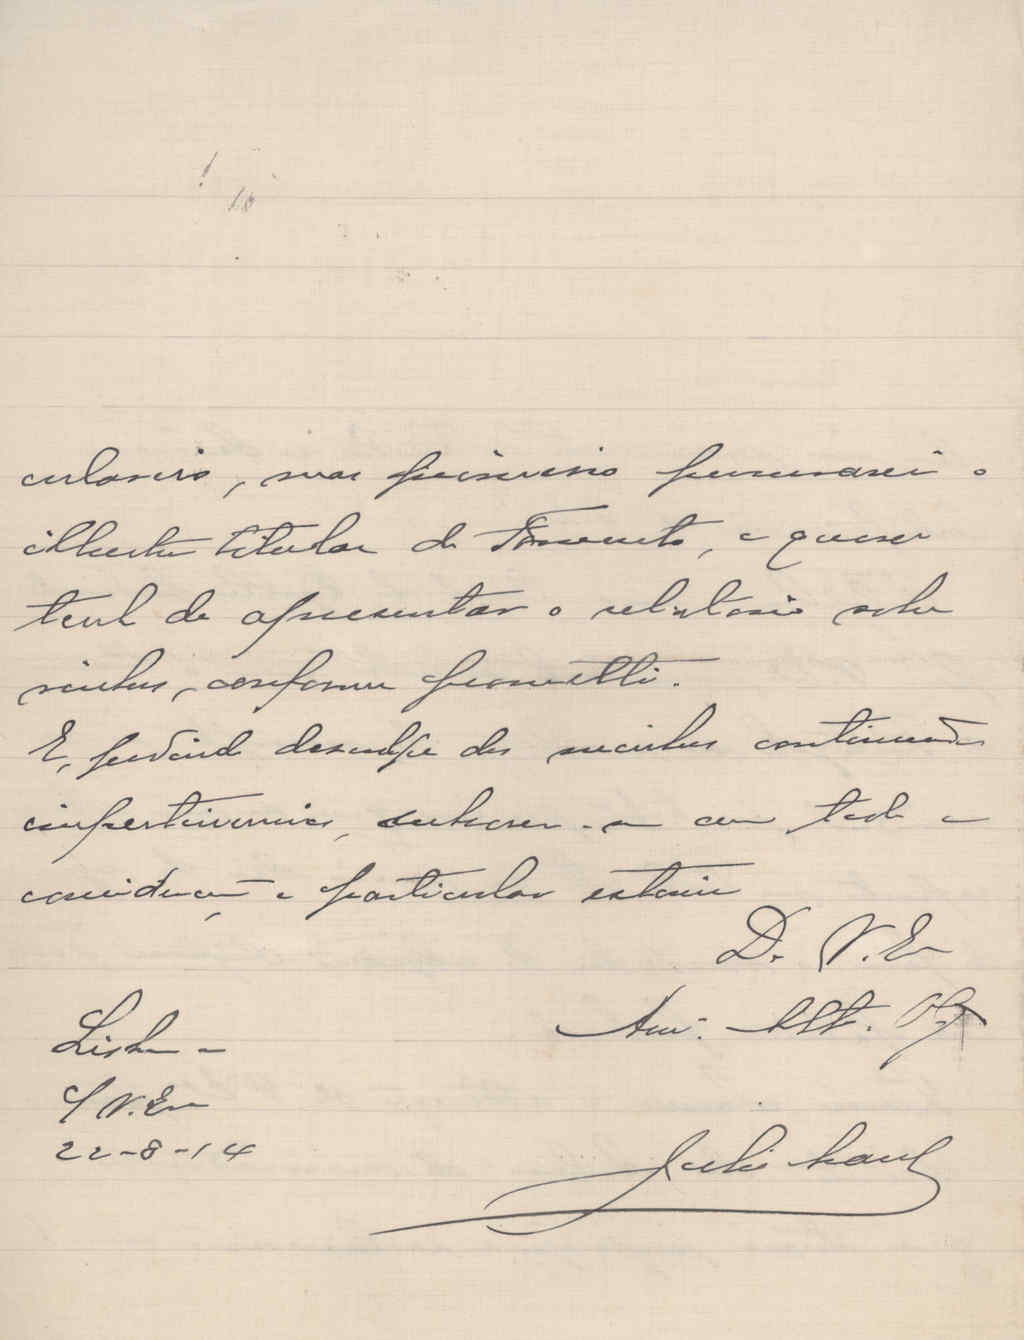 mas primeiro procurarei o
illustre titular do Fomento, a quem
terei de apresentar o relatorio sobre
vinhos, conforme prometti.
E, pedindo desculpa das minhas continuadas
impertinencias, subscrevo-me com toda a
consideração e particular estima
De V. Ex
Am. Att. Obg
Lisboa
S/ V. Ex
22-8-14
Julio